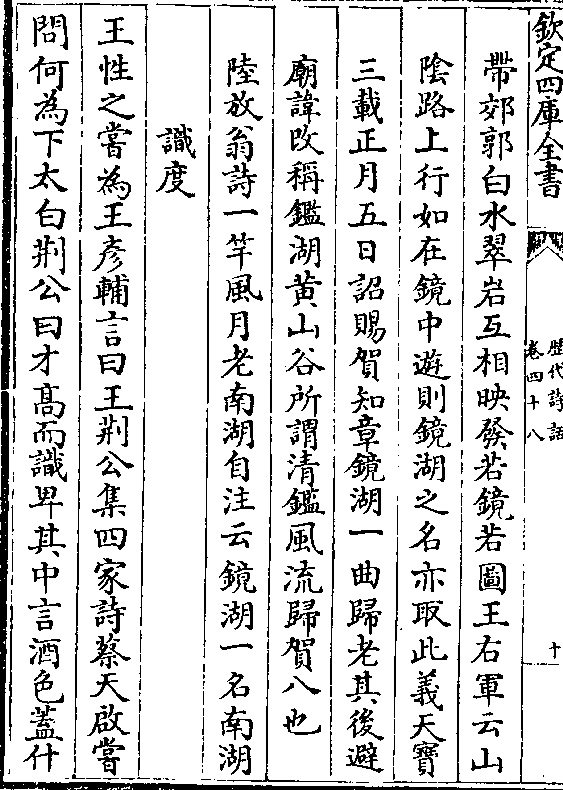 欽定四庫全書
歴代詩話
卷四十八
十
帶郊郭白水翠岩互相映發若鏡若圖王右軍云山
陰路上行如在鏡中遊則鏡湖之名亦取此義天寶
三載正月五日詔賜賀知章鏡湖一曲歸老其後避
廟諱改稱鑑湖黄山谷所謂清鑑風流歸賀八也
陸放翁詩一竿風月老南湖自注云鏡湖一名南湖
識度
王性之嘗為王彦輔言曰王荆公集四家詩蔡天啟嘗
問何為下太白荆公曰才髙而識卑其中言酒色蓋什